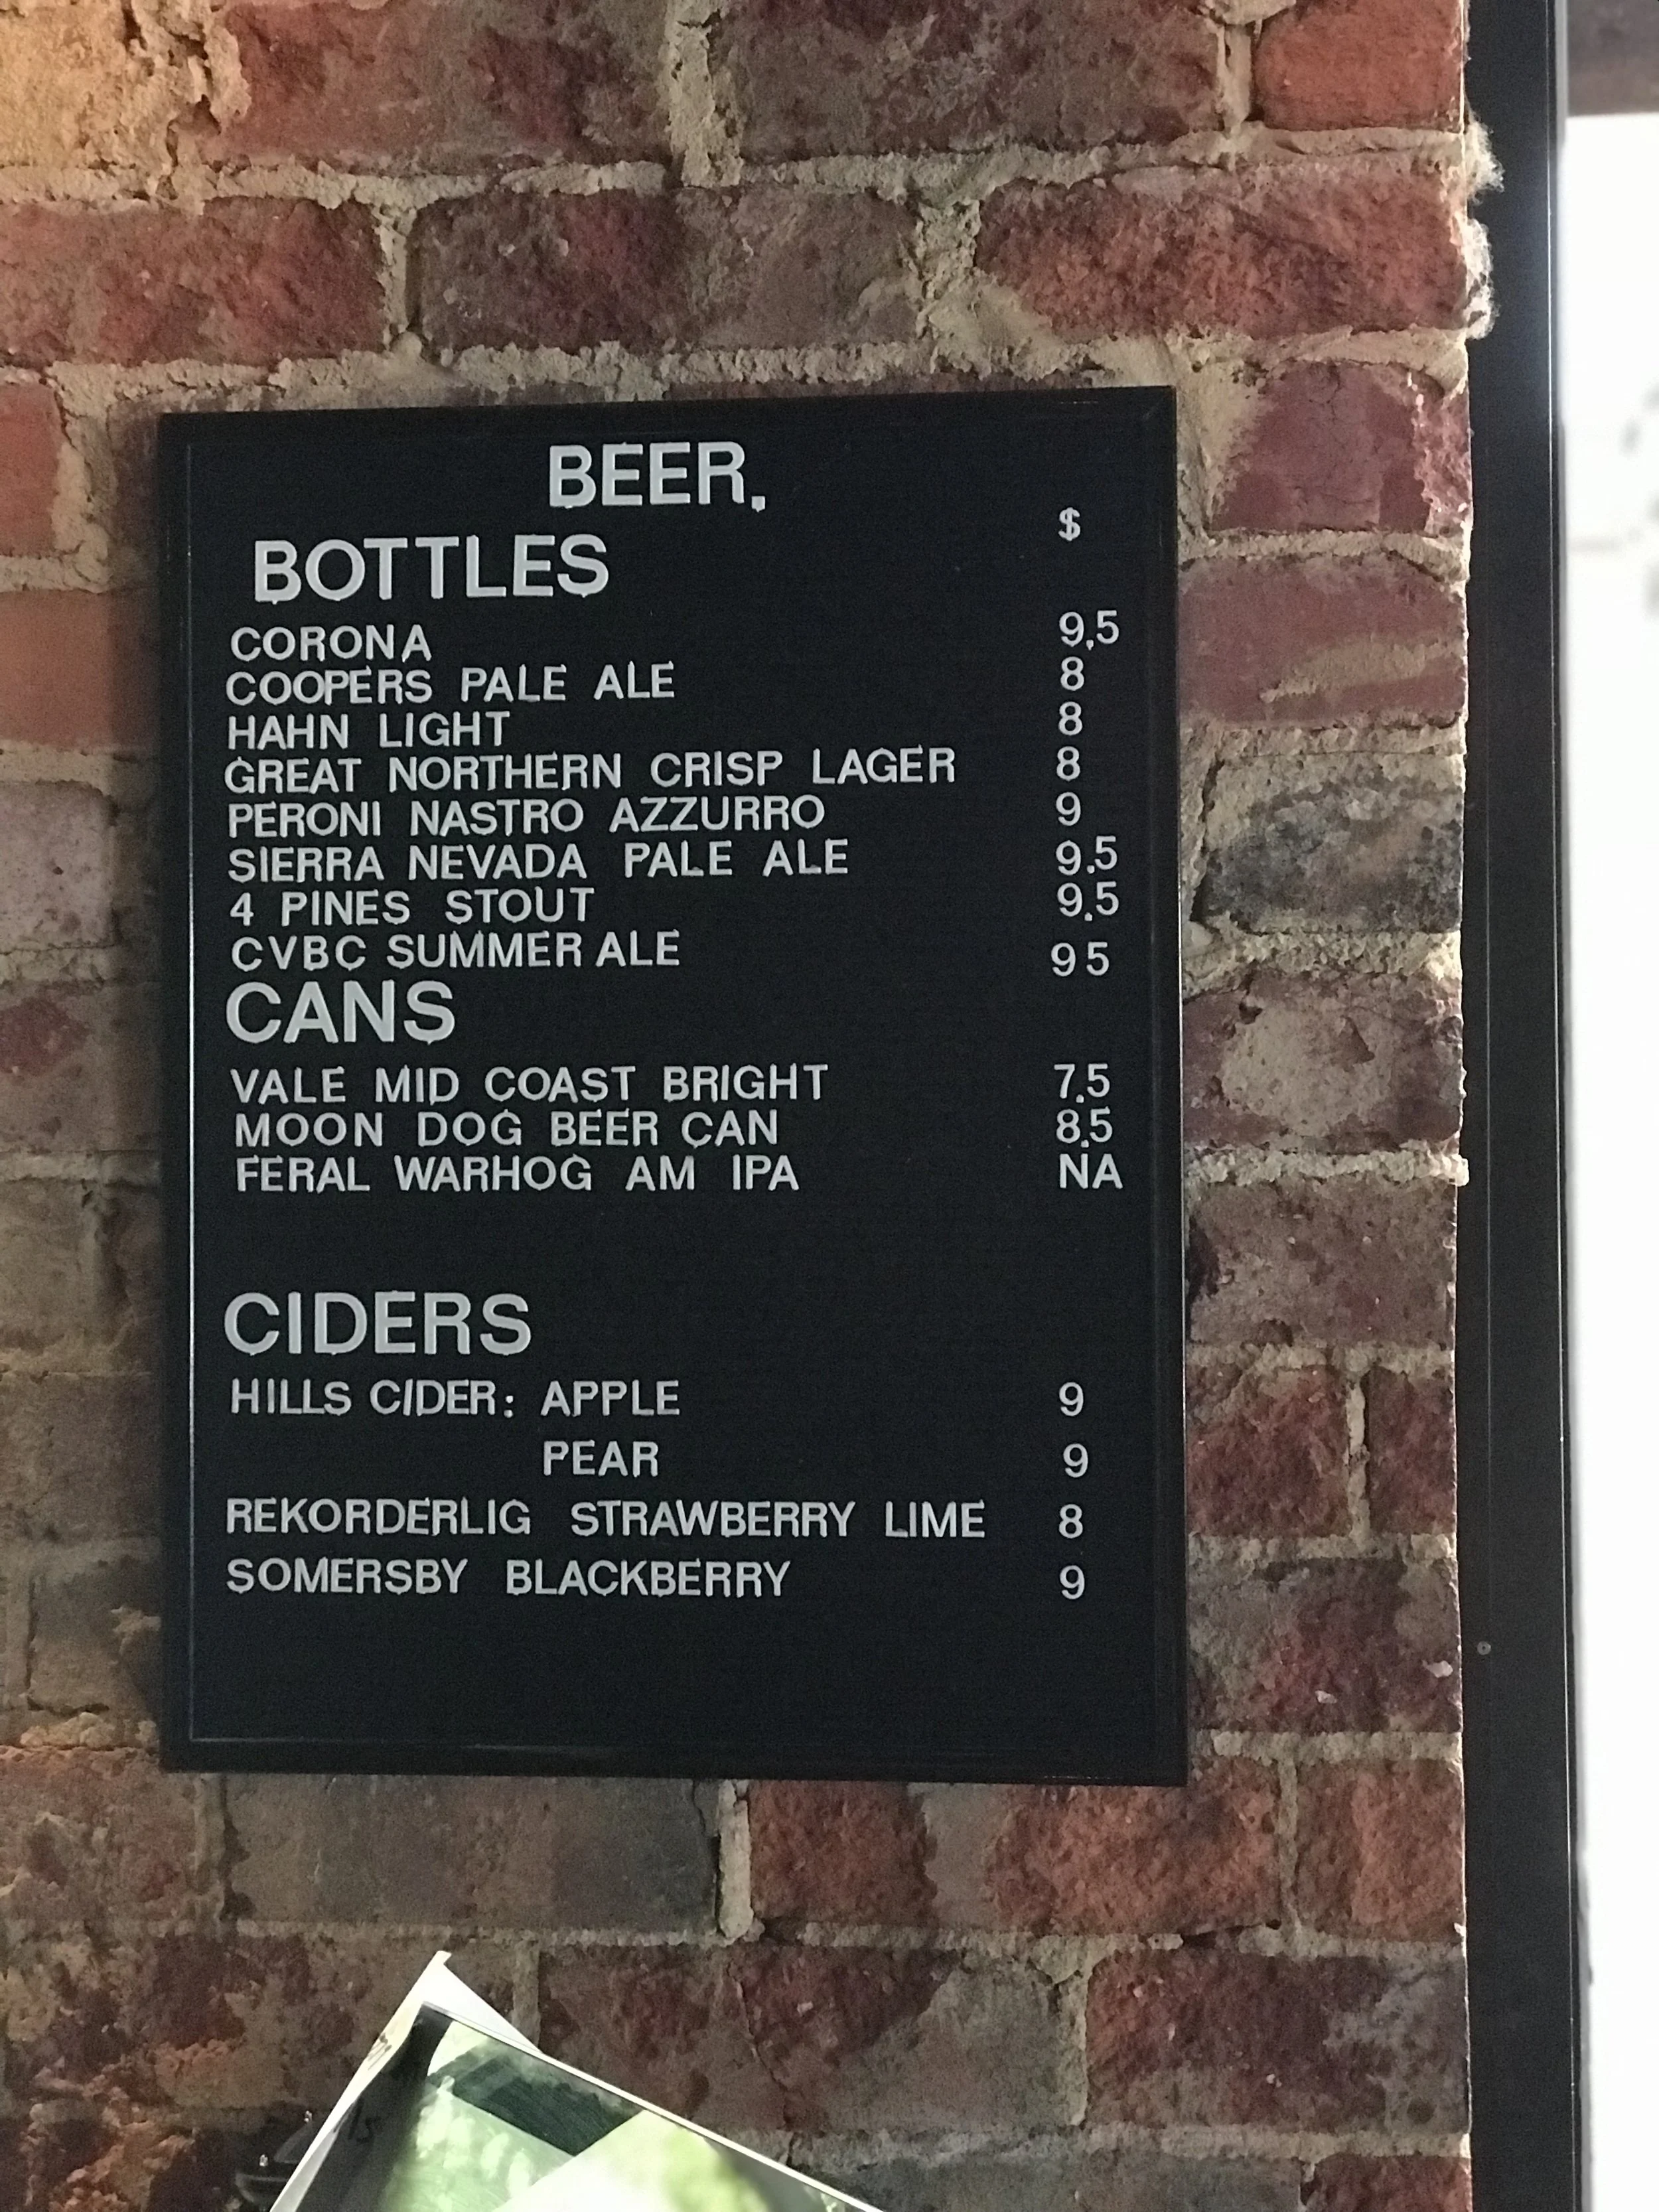 BEER.
$
BOTTLES
CORONA 9.5
COOPERS PALE ALE 8
HAHN LIGHT 8
GREAT NORTHERN CRISP LAGER 8
PERONI NASTRO AZZURRO 9
SIERRA NEVADA PALE ALE 9.5
4 PINES STOUT 9.5
CVBC SUMMER ALE 95
CANS
VALE MID COAST BRIGHT 7.5
MOON DOG BEER CAN 8.5
FERAL WARHOG AM IPA NA
CIDERS
HILLS CIDER: APPLE 9
PEAR 9
REKORDERLIG STRAWBERRY LIME 8
SOMERSBY BLACKBERRY 9